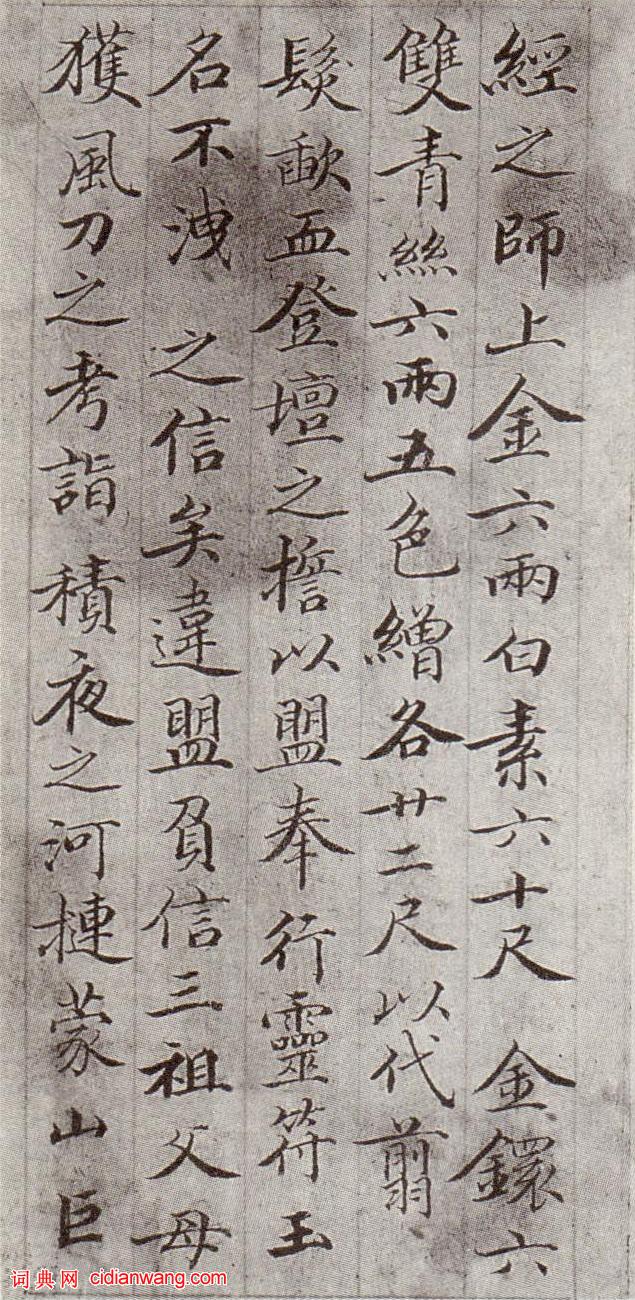 經之師上金六兩白素六十尺 金鐶六
雙青絲六兩五色繒各廿二尺以代翦
髮歃血登壇之擔以盟奉行靈符玉
名不洩 之信矣違盟負信三祖父母
獲風刀之考詣 積夜之河摙蒙山巨
词典网 cidianwang.com